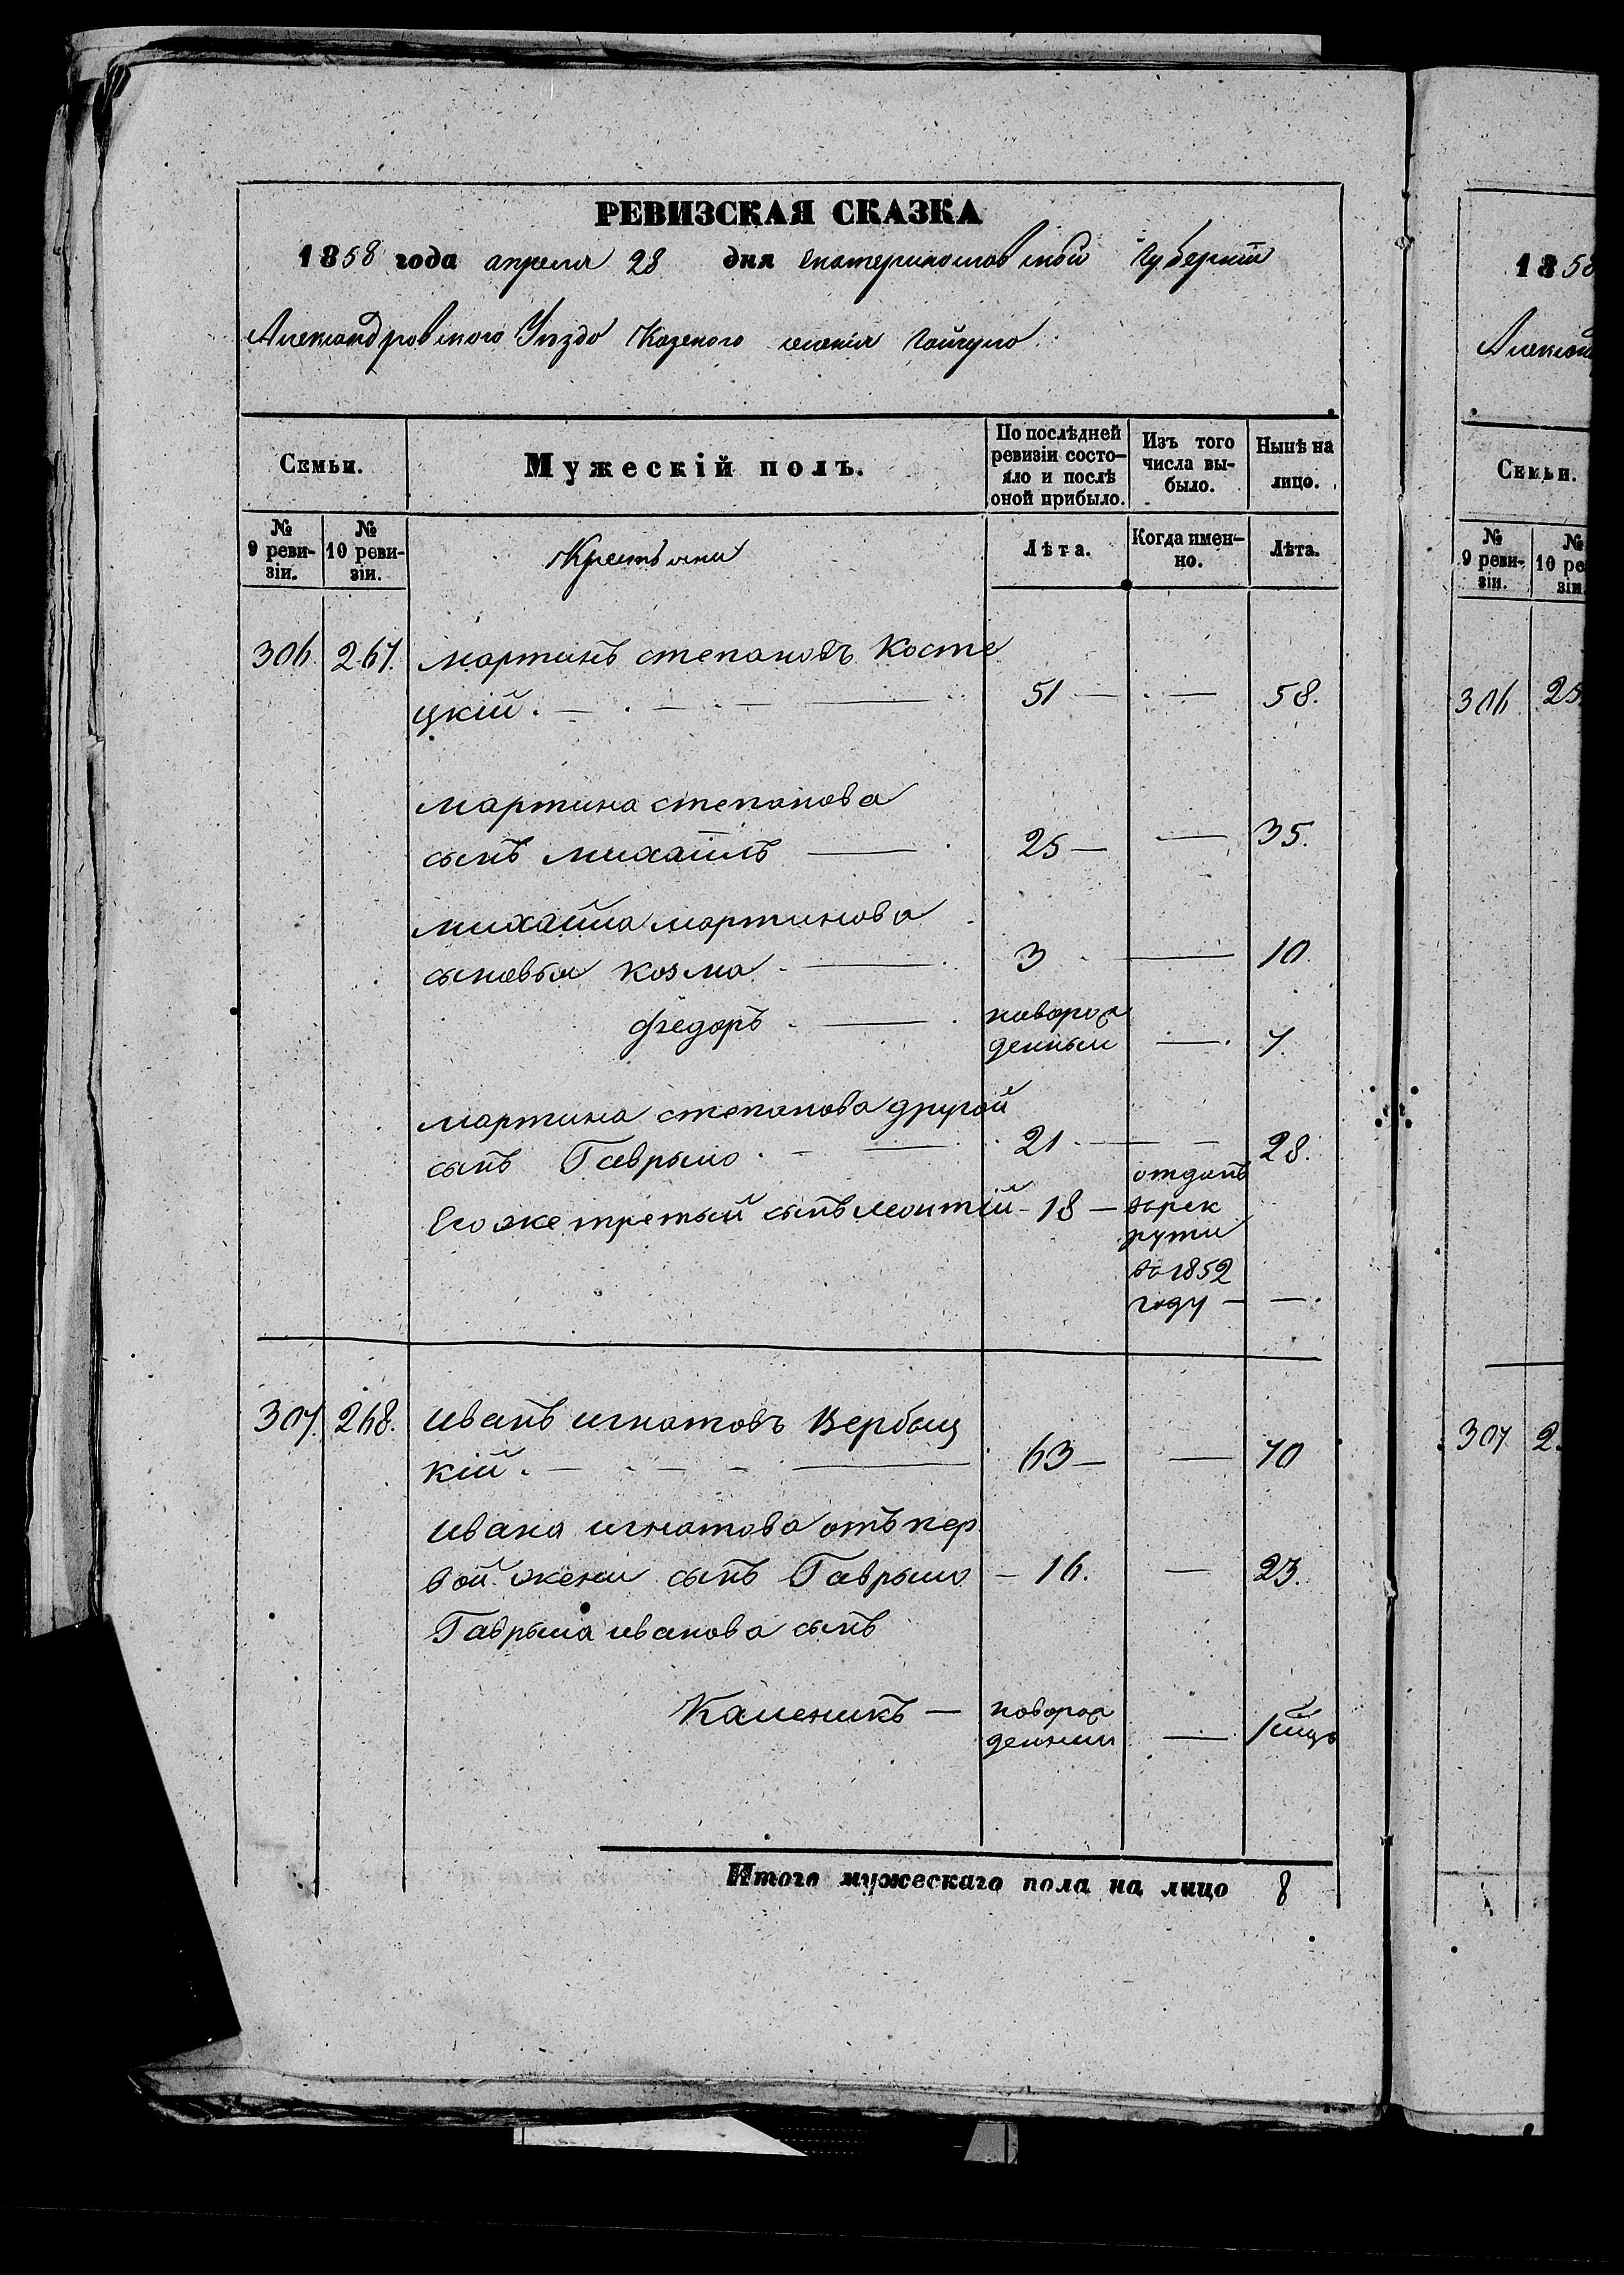 РЕВИЗСКАЯ СКАЗКА
1858 года апреля 28 дня Екатеринославской Губерніи
Александровского Уезда Казеного селенія Гайчула
Семьи. Мужескій полъ. По послѣдней ревизіи состо-яло и послѣ оной прибыло. Изъ того числа вы-было. Нынѣ на лицо.
№ 9 реви-зіи. № 10 реви-зіи. Крестьяни Лѣта. Когда имен-но. Лѣта.
306. 267. мартинъ степановъ Косте
цкій. 51 — — 58.
мартина степанова
сынъ михаилъ — 25 — — 35.
михаила мартинова
сыновья козма — 3 — 10.
Федоръ — новорож
денный — 7.
мартина степанова другой
сынъ Гаврыло — 21 — — 28.
Его же третый сынъ леонтій — 18 — отданъ
врек
рути
в 1852
году — —
307. 268. иванъ игнатовъ Вербыц
кій. — 63 — — 70
ивана игнатова отъ пер
вой жени сынъ Гаврыло — 16. — 23.
Гаврыла иванова сынъ
Каленикъ — новорож
денный —
Итого мужескаго пола на лицо 8
1858
306 25
307 2
Семьи.
№ 9 реви-зіи. № 10 ре зіи